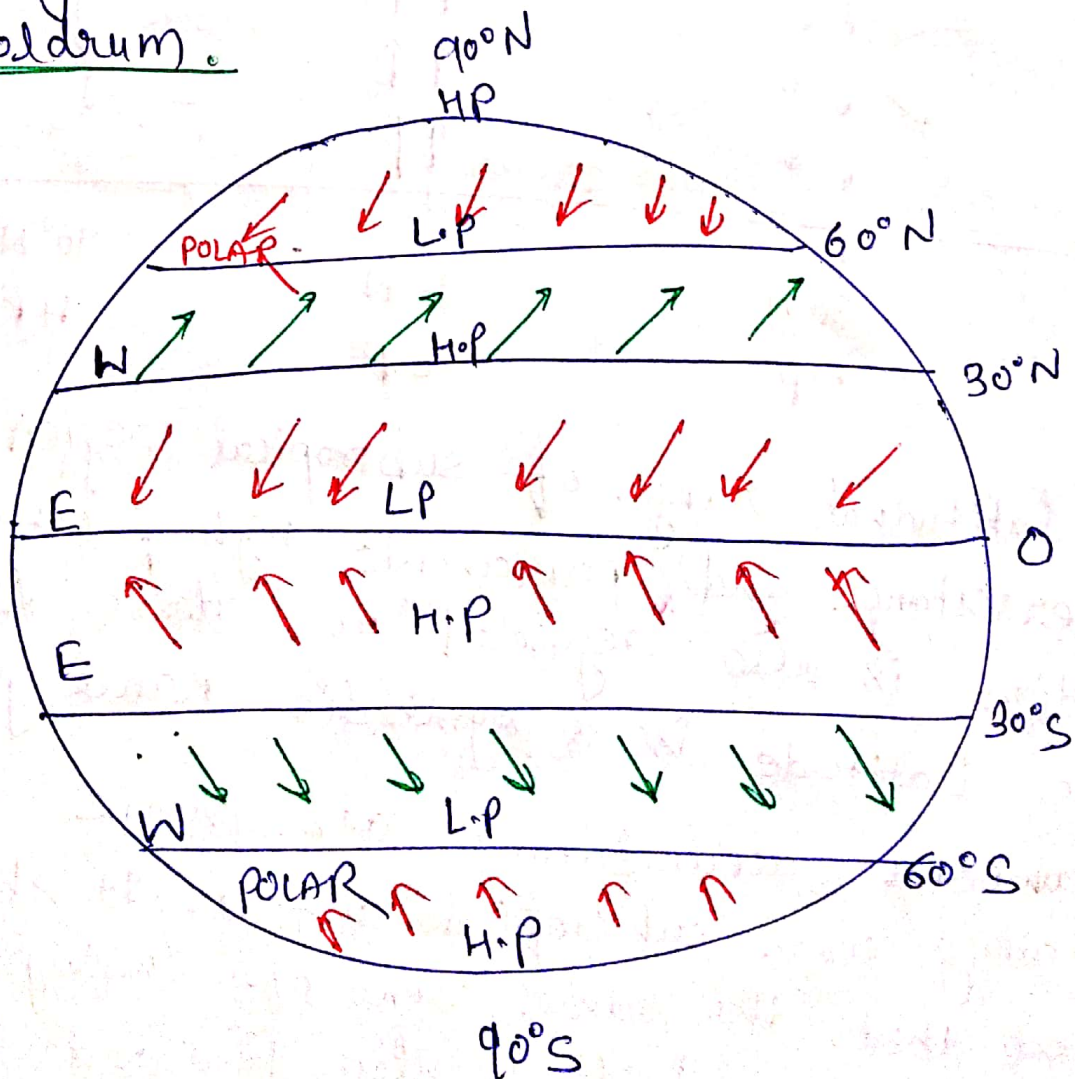 oldrum.
90°N
HP
L.P
POLAR
60°N
W
H.P
30°N
E
LP
0
H.P
E
30°S
L.P
W
60°S
POLAR
H.P
90°S